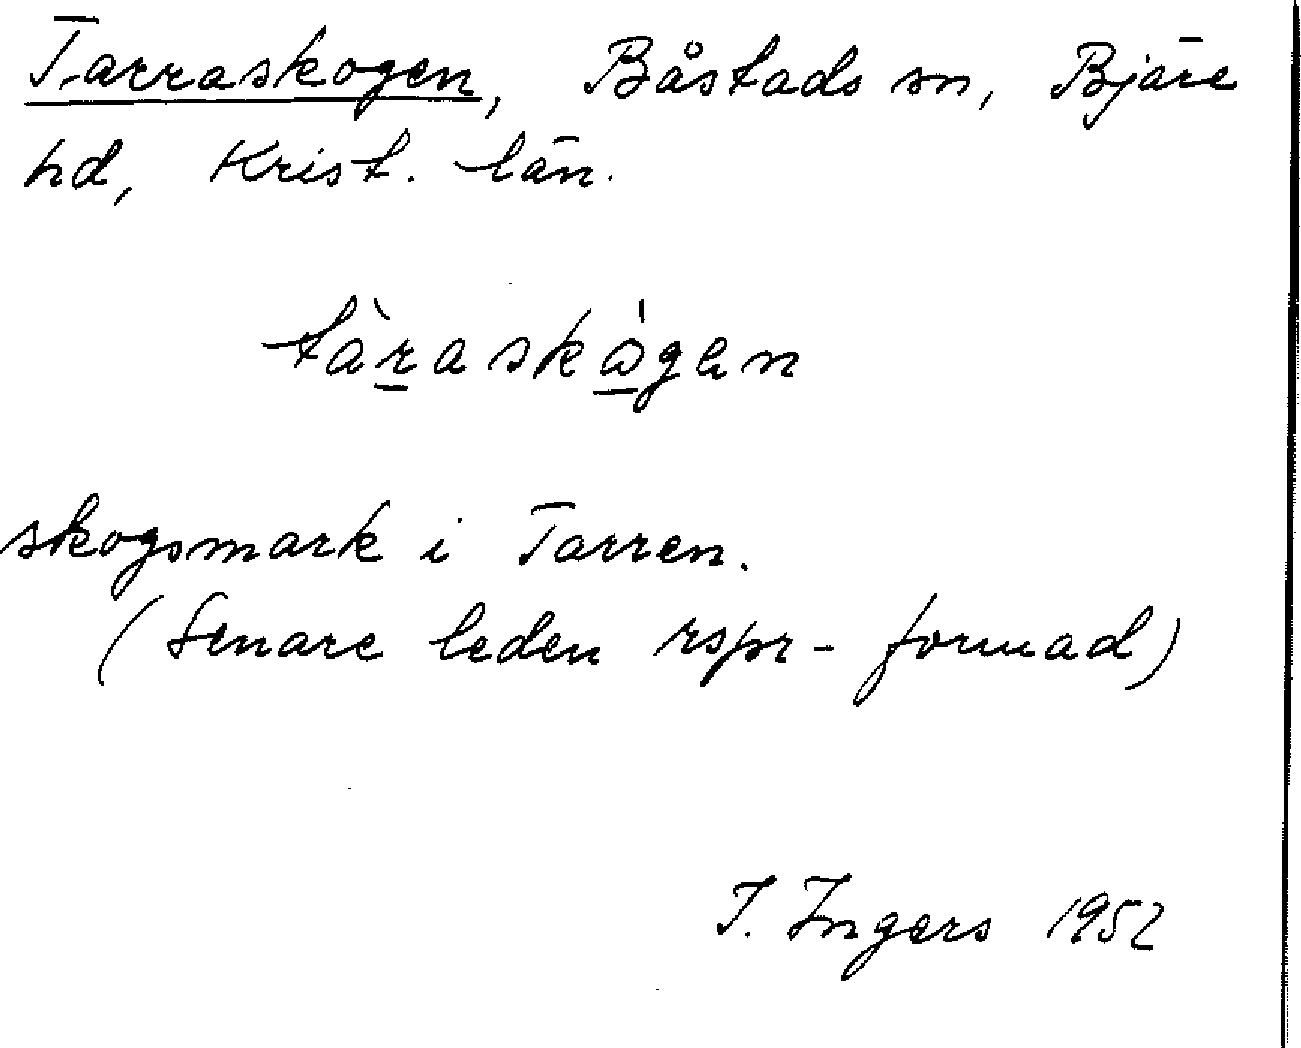 Tarraskogen, Båstads sn, Bjäre
hd, Krist. län.
tàraskógen
skogsmark i Tarren.
(Senare leden rspr-formad)
I. Ingers 1952